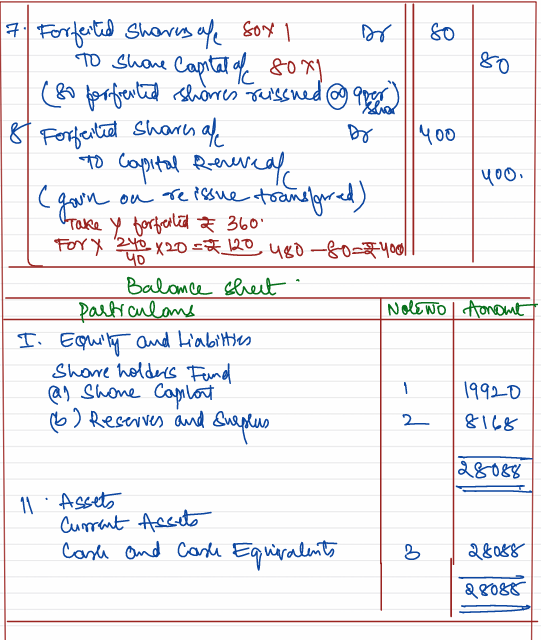 7. Forfeited Shares a/c 80 x 1 Dr 80
To Share Capital a/c 80 x 1 80
(80 forfeited shares reissued @ 9 per share)
8 Forfeited Shares a/c Dr 400
To Capital Reserve a/c 400.
(gain on reissue transferred)
Take Y forfeited ₹ 360.
For X 240/40 x 20 = ₹ 120 480 - 80 = ₹ 400
Balance sheet.
Particulars Note No Amount
I. Equity and Liabilities
Share holders Fund
(a) Share Capital 1 19920
(b) Reserves and Surplus 2 8168
28088
II. Assets
Current Assets
Cash and Cash Equivalents 3 28088
28088